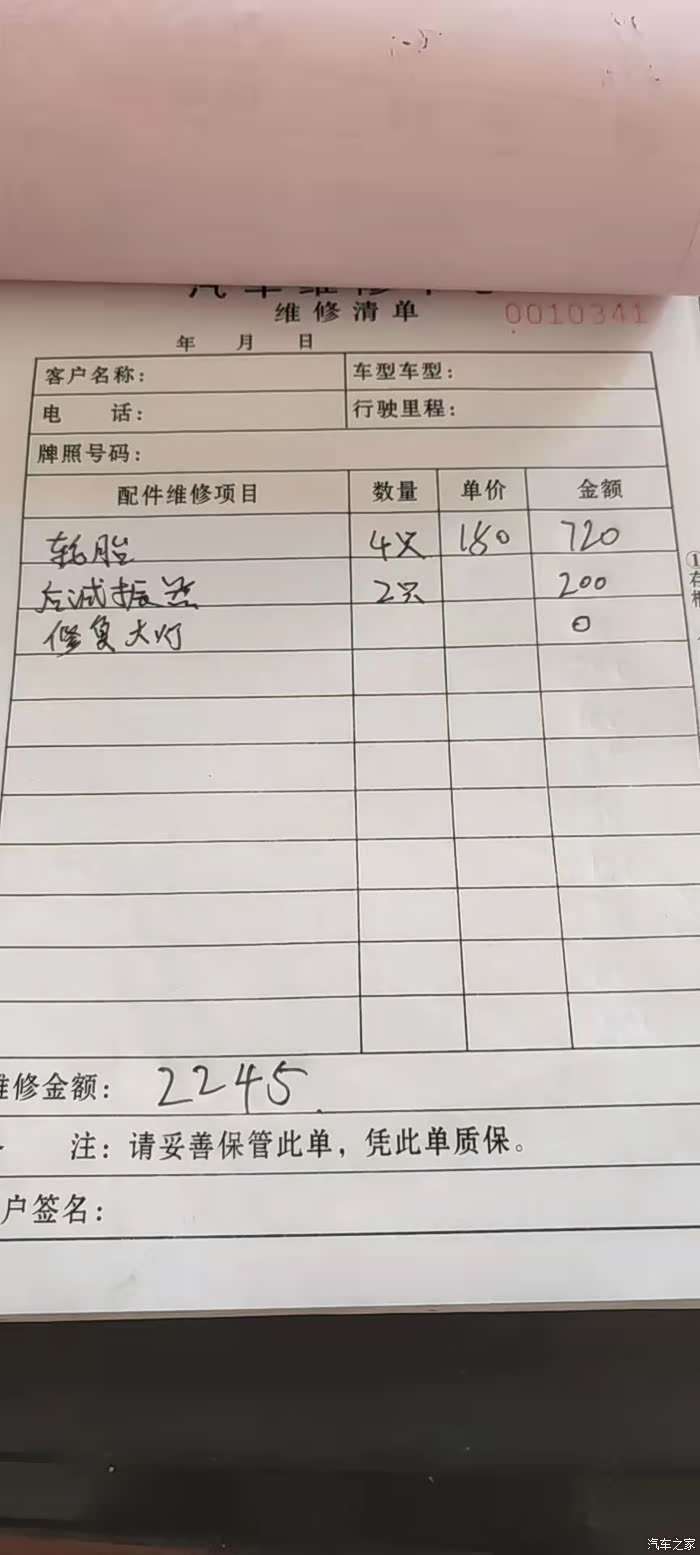 维修清单 0010341
年 月 日
客户名称： 车型车型：
电 话： 行驶里程：
牌照号码：
配件维修项目 数量 单价 金额
轮胎 4只 180 720
后减振器 2只 200
修复大灯 0
维修金额： 2245
注：请妥善保管此单，凭此单质保。
户签名：
汽车之家